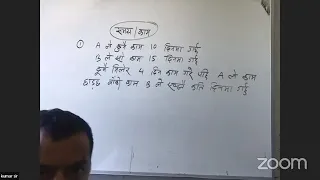 समय/काम
① A ले कुनै काम 10 दिनमा गर्छ
B ले सो काम 15 दिनमा गर्छ
दुवै मिलेर 4 दिन काम गरे पछि A ले काम
छाड्छ बाँकी काम B ले कति दिनमा गर्छ
kumar sir
zoom